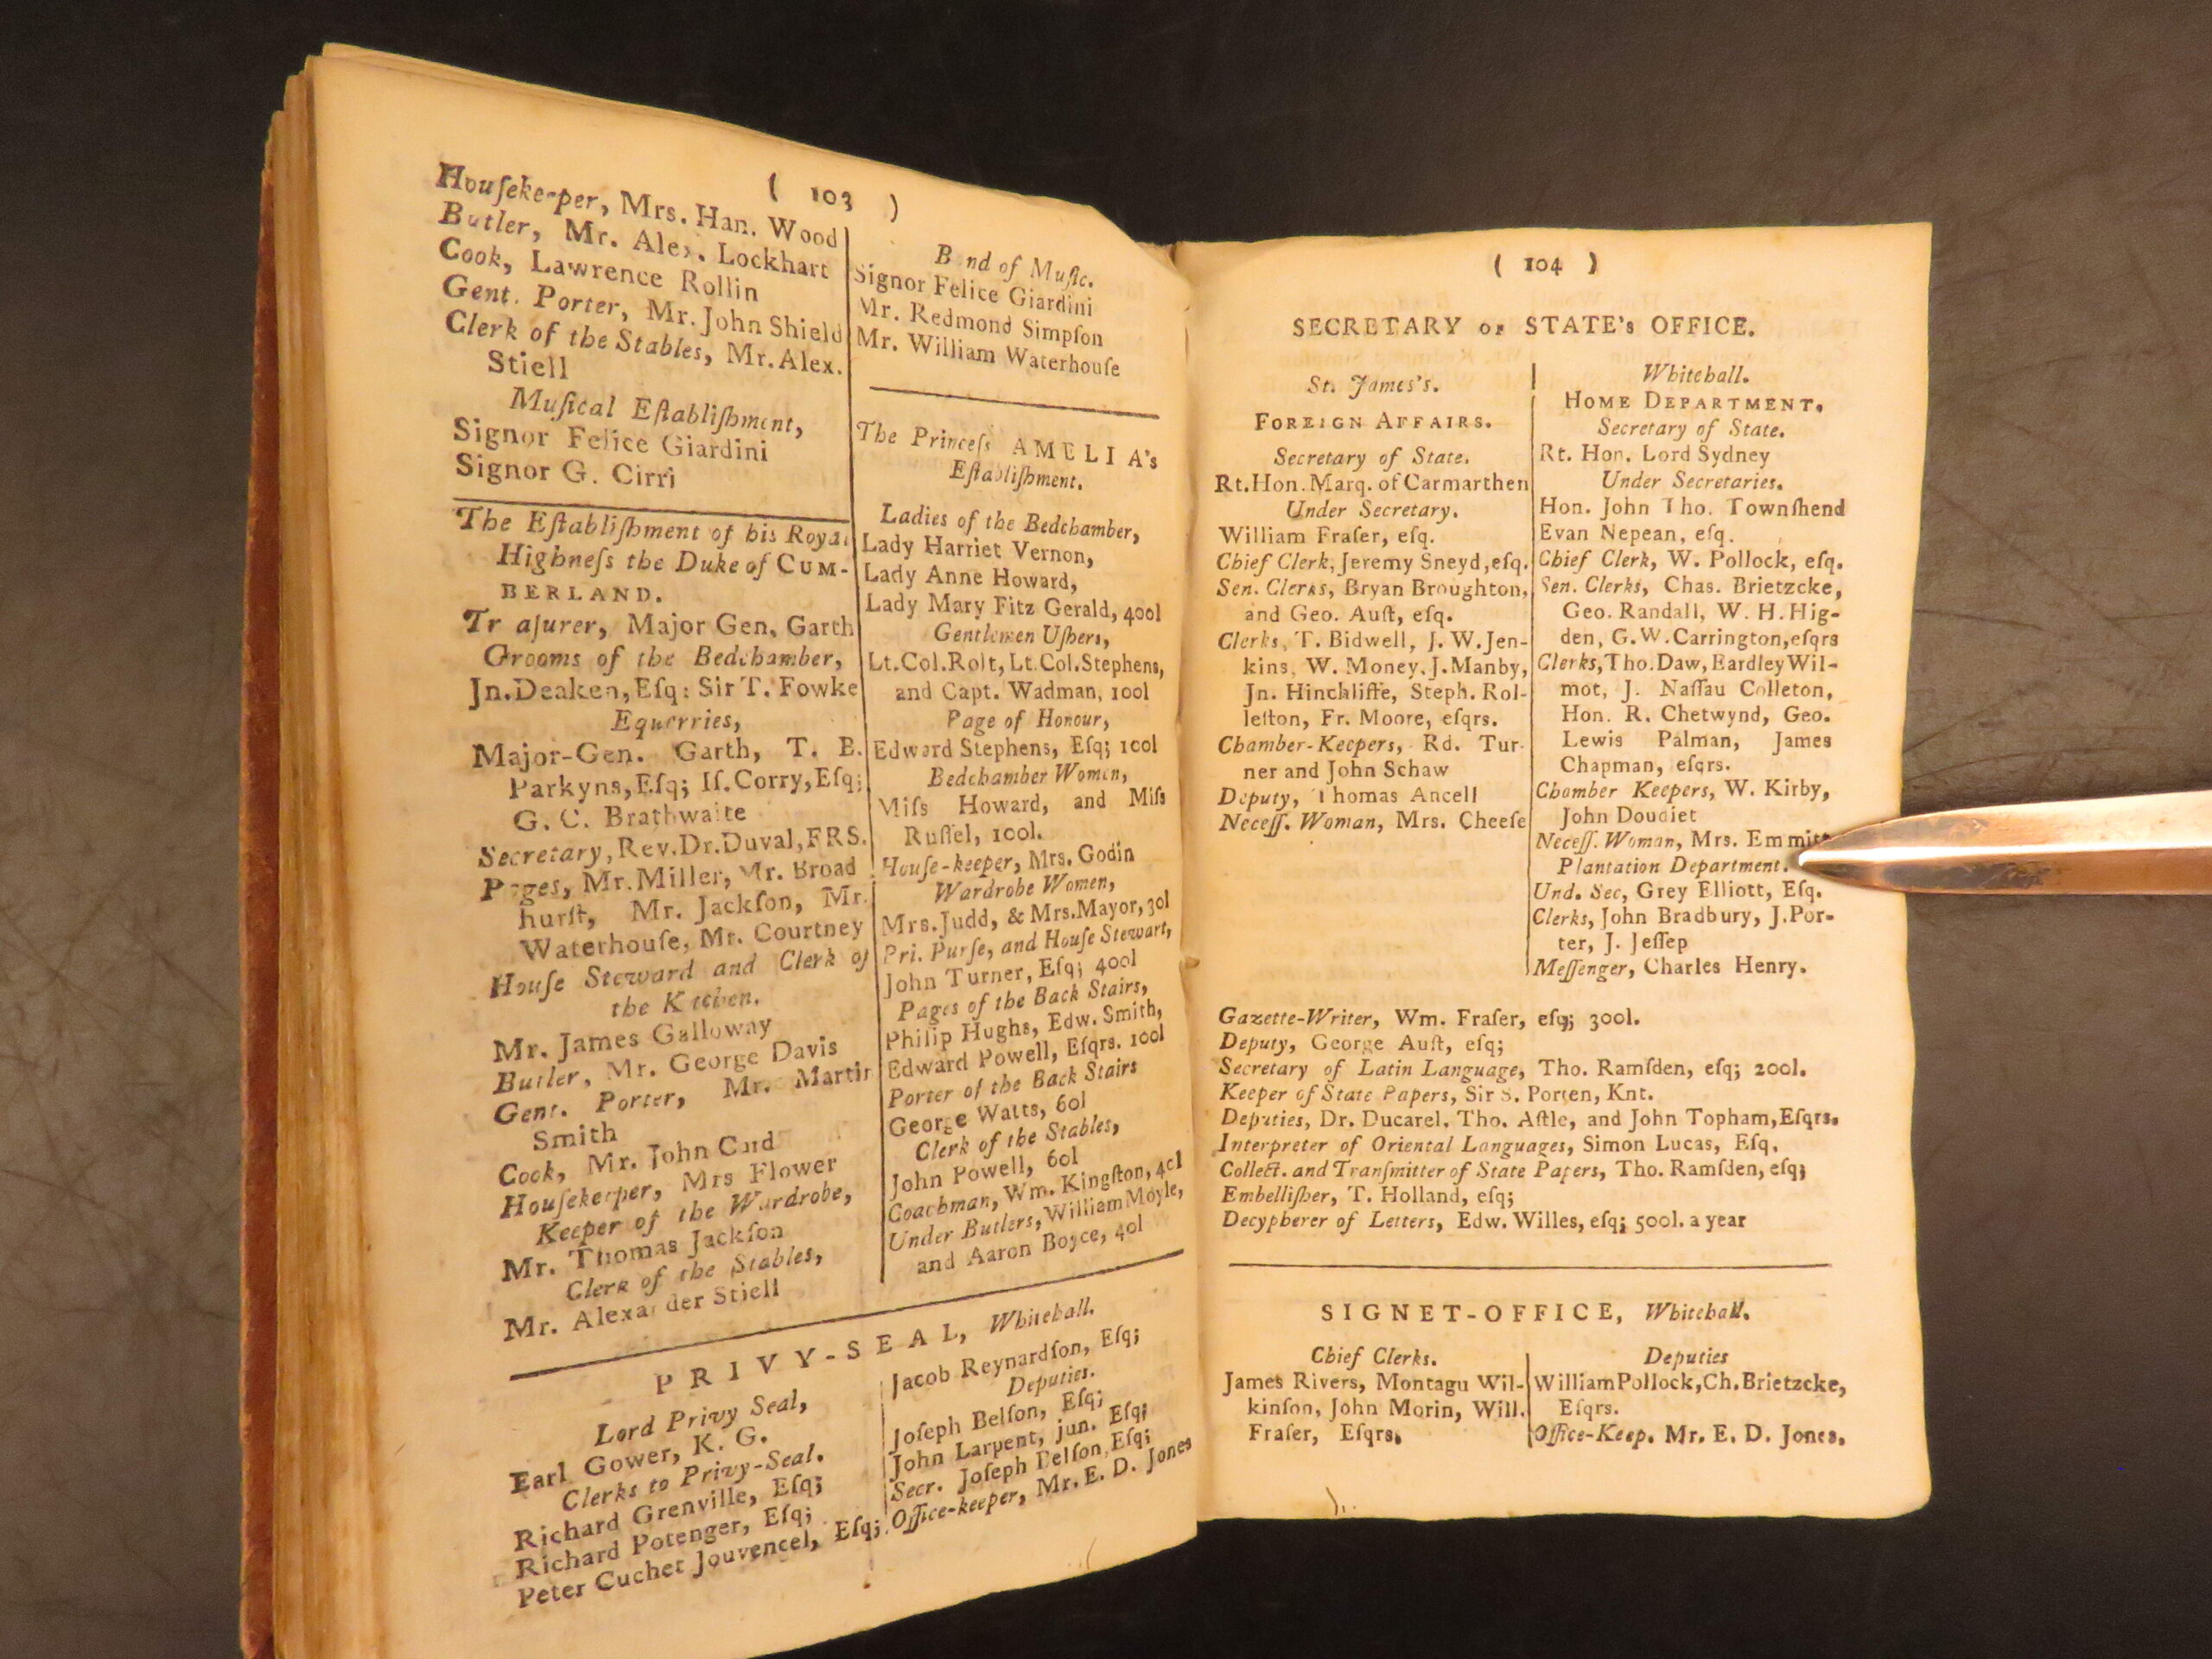 ( 103 )
Houſekeeper, Mrs. Han. Wood
Butler, Mr. Alex. Lockhart
Cook, Lawrence Rollin
Gent. Porter, Mr. John Shield
Clerk of the Stables, Mr. Alex.
Stiell
Muſical Eſtabliſhment,
Signor Felice Giardini
Signor G. Cirri
The Eſtabliſhment of his Royal
Highneſs the Duke of CUM-
BERLAND.
Treaſurer, Major Gen. Garth
Grooms of the Bedchamber,
Jn. Deaken, Eſq; Sir T. Fowke
Equerries,
Major-Gen. Garth, T. B.
Parkyns, Eſq; Iſ. Corry, Eſq;
G. C. Brathwaite
Secretary, Rev. Dr. Duval, FRS.
Pages, Mr. Miller, Mr. Broad
hurſt, Mr. Jackſon, Mr.
Waterhouſe, Mr. Courtney
Houſe Steward and Clerk of
the Kitchen.
Mr. James Galloway
Butler, Mr. George Davis
Gent. Porter, Mr. Martin
Smith
Cook, Mr. John
Houſekeeper, Mrs Flower
Keeper of the Wardrobe,
Mr. Thomas Jackſon
Clerk of the Stables,
Mr. Alexander Stiell
Band of Muſic.
Signor Felice Giardini
Mr. Redmond Simpſon
Mr. William Waterhouſe
The Princeſs AMELIA's
Eſtabliſhment.
Ladies of the Bedchamber,
Lady Harriet Vernon,
Lady Anne Howard,
Lady Mary Fitz Gerald, 400l
Gentlemen Uſhers,
Lt. Col. Rolt, Lt. Col. Stephens,
and Capt. Wadman, 100l
Page of Honour,
Edward Stephens, Eſq; 100l
Bedchamber Women,
Miſs Howard, and Miſs
Ruſſel, 100l.
Houſe-keeper, Mrs. Godin
Wardrobe Women,
Mrs. Judd, & Mrs. Mayor, 30l
Pri. Purſe, and Houſe Stewart,
John Turner, Eſq; 400l
Pages of the Back Stairs,
Philip Hughs, Edw. Smith,
Edward Powell, Eſqrs. 100l
Porter of the Back Stairs
George Watts, 60l
Clerk of the Stables,
John Powell, 60l
Coachman, Wm. Kingſton, 40l
Under Butlers, William Moyle,
and Aaron Boyce, 40l
PRIVY-SEAL, Whitehall.
Lord Privy Seal,
Earl Gower, K. G.
Clerks to Privy-Seal.
Richard Grenville, Eſq;
Richard Potenger, Eſq;
Peter Cuchet Jouvencel, Eſq;
Jacob Reynardſon, Eſq;
Deputies.
Joſeph Belſon, Eſq;
John Larpent, jun. Eſq;
Secr. Joſeph Belſon, Eſq;
Office-keeper, Mr. E. D. Jones
( 104 )
SECRETARY OF STATE's OFFICE.
St. James's.
FOREIGN AFFAIRS.
Secretary of State.
Rt. Hon. Marq. of Carmarthen
Under Secretary.
William Fraſer, eſq.
Chief Clerk, Jeremy Sneyd, eſq.
Sen. Clerks, Bryan Broughton,
and Geo. Auſt, eſq.
Clerks, T. Bidwell, J. W. Jen-
kins, W. Money, J. Manby,
Jn. Hinchliffe, Steph. Rol-
leſton, Fr. Moore, eſqrs.
Chamber-Keepers, Rd. Tur-
ner and John Schaw
Deputy, Thomas Ancell
Neceſſ. Woman, Mrs. Cheeſe
Whitehall.
HOME DEPARTMENT.
Secretary of State.
Rt. Hon. Lord Sydney
Under Secretaries.
Hon. John Tho. Townſhend
Evan Nepean, eſq.
Chief Clerk, W. Pollock, eſq.
Sen. Clerks, Chas. Brietzcke,
Geo. Randall, W. H. Hig-
den, G. W. Carrington, eſqrs
Clerks, Tho. Daw, Eardley Wil-
mot, J. Naſſau Colleton,
Hon. R. Chetwynd, Geo.
Lewis Palman, James
Chapman, eſqrs.
Chamber Keepers, W. Kirby,
John Doudiet
Neceſſ. Woman, Mrs.
Plantation Department.
Und. Sec, Grey Elliott, Eſq.
Clerks, John Bradbury, J. Por-
ter, J. Jeſſep
Meſſenger, Charles Henry.
Gazette-Writer, Wm. Fraſer, eſq; 300l.
Deputy, George Auſt, eſq;
Secretary of Latin Language, Tho. Ramſden, eſq; 200l.
Keeper of State Papers, Sir S. Porten, Knt.
Deputies, Dr. Ducarel, Tho. Aſtle, and John Topham, Eſqrs.
Interpreter of Oriental Languages, Simon Lucas, Eſq.
Collect. and Tranſmitter of State Papers, Tho. Ramſden, eſq;
Embelliſher, T. Holland, eſq;
Decypherer of Letters, Edw. Willes, eſq; 500l. a year
SIGNET-OFFICE, Whitehall.
Chief Clerks.
James Rivers, Montagu Wil-
kinſon, John Morin, Will.
Fraſer, Eſqrs.
Deputies
William Pollock, Ch. Brietzcke,
Eſqrs.
Office-Keep. Mr. E. D. Jones.